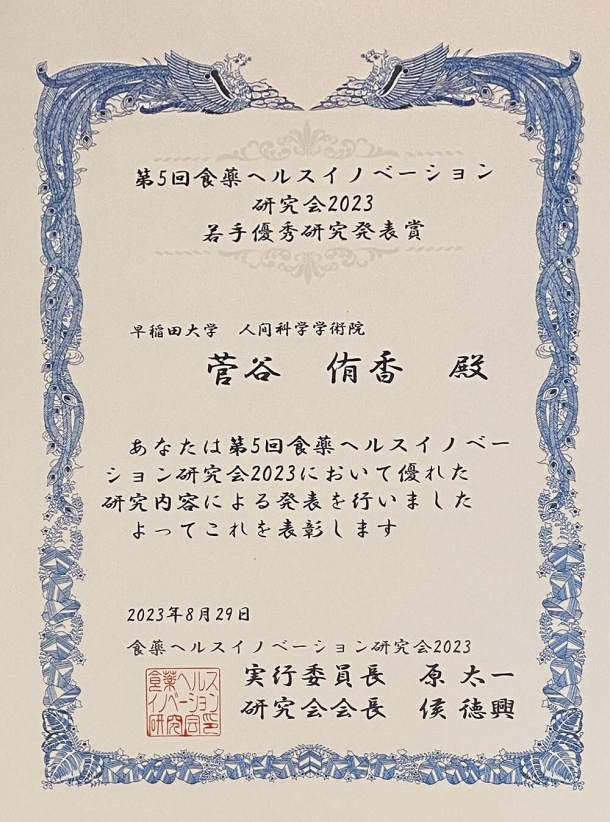 第5回食薬ヘルスイノベーション
研究会2023
若手優秀研究発表賞
早稲田大学　人间科学学術院
菅谷　侑香　殿
あなたは第5回食薬ヘルスイノベー
ション研究会2023において優れた
研究内容による発表を行いました
よってこれを表彰します
2023年8月29日
食薬ヘルスイノベーション研究会2023
実行委員長　原 太一
研究会会長　侯 徳興
食薬ヘルス
イノベーション
研究会印